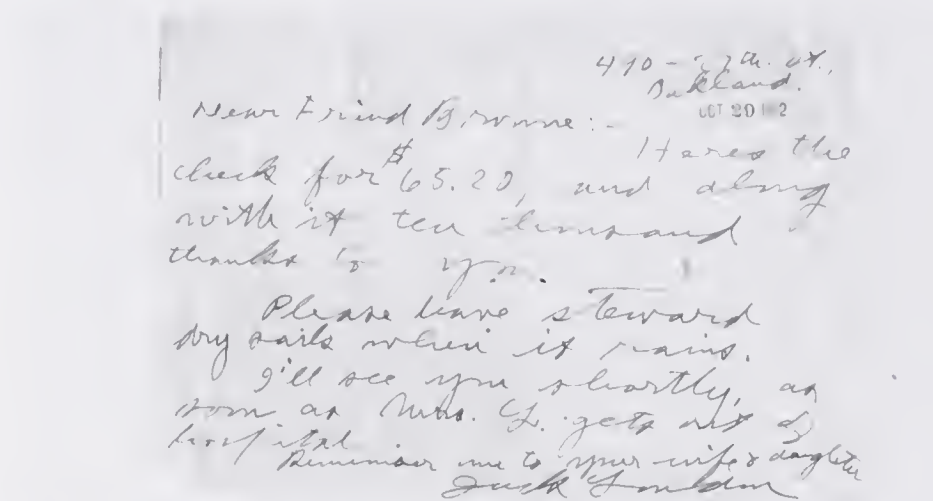 490 - 27th. St.,
Oakland.
OCT 20 1912
Dear Friend Browne:-
Heres the
check for $65.20, and along
with it ten thousand
thanks to you.
Please have steward
dry sails when it rains.
I'll see you shortly, as
soon as Mrs. L. gets out of
hospital.
Remember me to your wife & daughter
Jack London